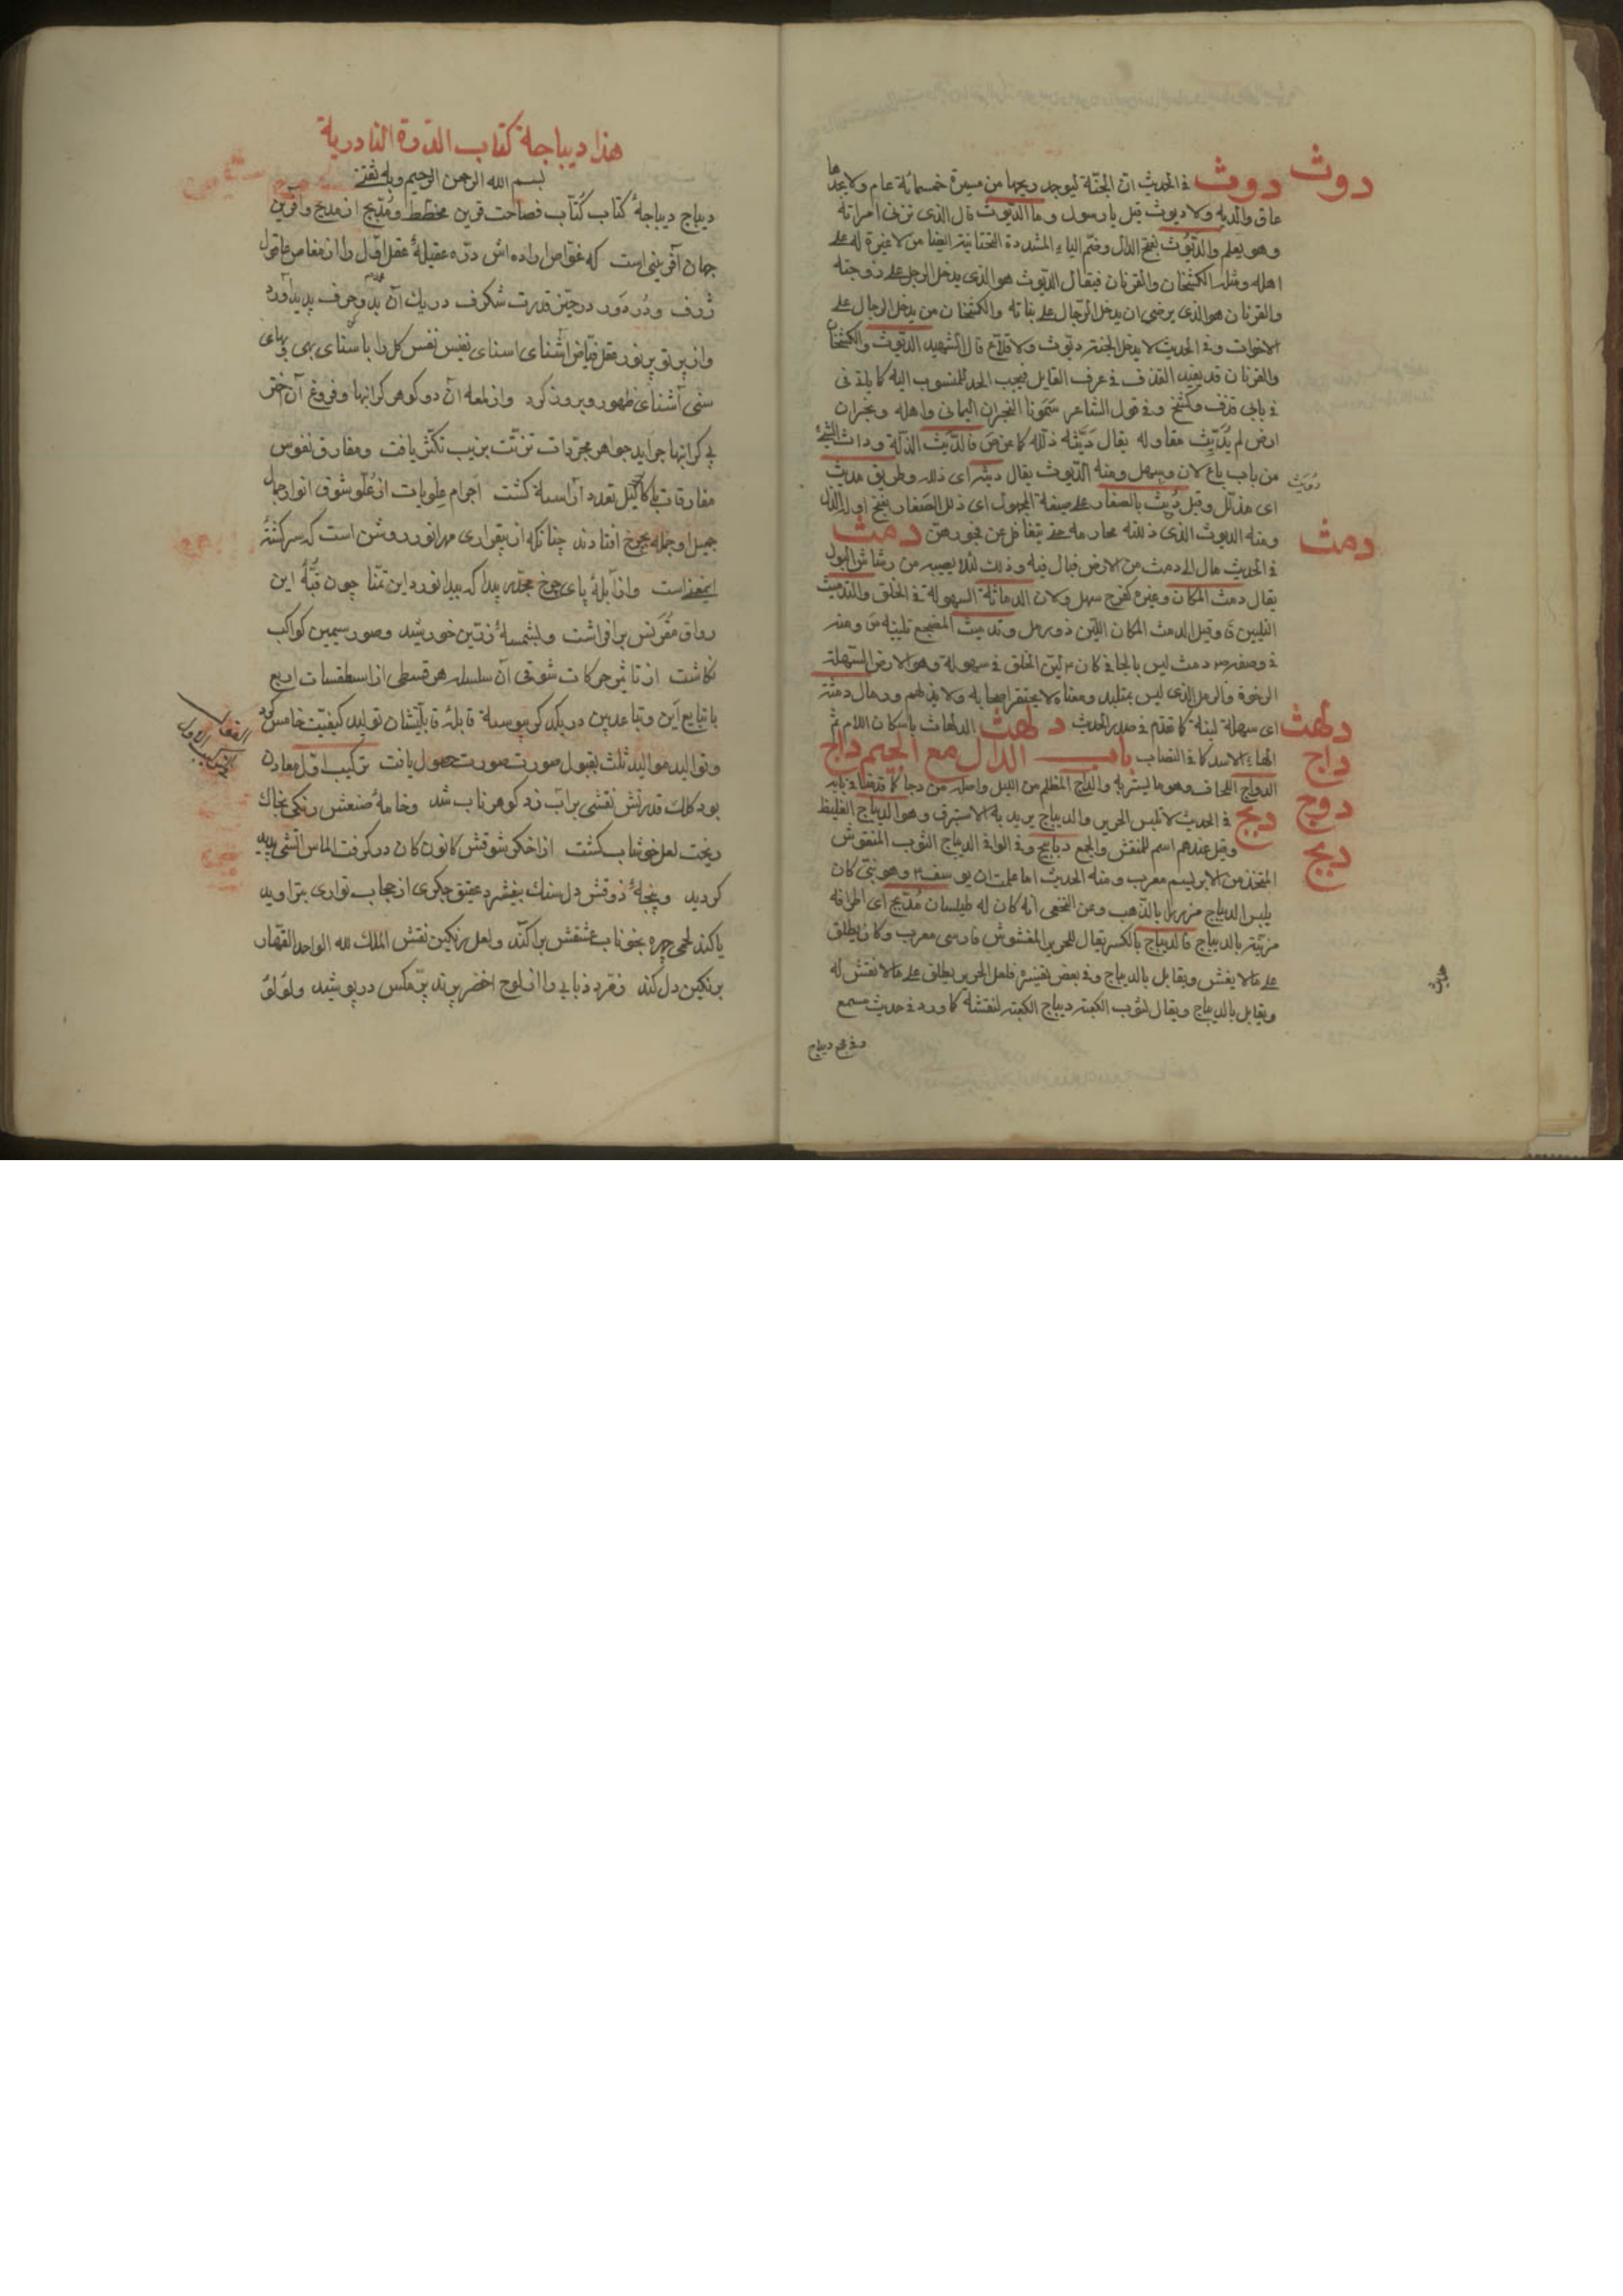 دوث دوث في الحديث ان الجنّة ليوجد ريحها من مسيرة خمسمائة عام ولا يجدها
عاق والديه ولا ديوث قيل يا رسول وما الديّوث قال الذى تزنى امراته
وهو يعلم والديّوث بفتح الدال وضم الياء المشددة التحتانية ايضا من لا غيرة له على
اهله ومثله الكشخان والقرنان فيقال الديّوث هو الذى يدخل الرجل على زوجته
والقرنان هو الذى يرضى ان يدخل الرّجال على بناته والكشخان من يدخل الرجال على
الاخوات وفى الحديث لا يدخل الجنة ديّوث ولا قلاع قال الشهيد الديّوث والكشخان
والقرنان قد يفيد القذف فى عرف القايل فيجب الحد للمنسوب اليه كما ياتى
فى بابى قذف وكشخ وفى قول الشاعر النجران اليمانى واهله ونجران
ارض لم يُدَيّث مقاوله يقال دَيَّثه ذلله فالدّيث الذلّة وداث الشئ
من باب باع لان وسهل ومنه الدّيوث يقال ديّثه اى ذلله وطريق مديّث
دُيّث
اى مذلّل وقيل دُيّث بالصغار على صيغة المجهول اى ذلل الصغار بفتح اوله الذل
ومنه الديوث الذى ذللته محارمه حتى يتغافل عن فجورهن دمث
دمث
فى الحديث مال الى دمث من الارض فبال فيه وذلك لئلا يصيبه من رشاش البول
يقال دمث المكان وغيره كفرح سهل ولان الدماثة السهولة فى الخلق والتدميث
التليين وقيل الدمث المكان الليّن ذو رمل وتدميث المضجع تليينه ومنه
فى وصفه دمث ليس بالجافى كان ليّن الخلق فى سهولة وهو الارض السّهلة
الرخوة والرمل الذى ليس بمتلبد ومعناه لا يحتقر اصحابه ولا يذلهم ورمال دمثة
دلهث اى سهلة لينة كما تقدم فى صدر الحديث دلهث الدلهاث باسكان اللام ثم
داج الهاء الاسد كما فى النصاب باب الدال مع الجيم داج
الدواج اللحاف وهو ما يستر به والداج المظلم من الليل واصله من دجا كما قدمنا فى بابه
دوج دبج فى الحديث لا تلبس الحرير والديباج يريد به الاستبرق وهو الديباج الغليظ
دبج وقيل عندهم اسم للمنقش والجمع دبابيج وفى الوافى الديباج الثوب المنقوش
المتخذ من الابريسم معرب ومنه الحديث اما علمت ان يوسف وهو نبى كان
يلبس الديباج مزررا بالذّهب وعن النخعى انه كان له طيلسان مُدبّج اى اطرافه
مزيّنة بالديباج فالديباج بالكسر يقال للحرير المنقوش فارسى معرب وكان يطلق
على ما لا يغش ويقابل بالديباج وفى بعض تفسيره فلعل الحرير يطلق على ما لا نقش له
ويقابل بالديباج ويقال لثوب الكعبة ديباج الكعبة لنقشه كما ورد فى حديث مسمع
هذا ديباجة كتاب الدّرة النادرية
بسم الله الرحمن الرحيم وبه ثقتى
ديباج ديباجهٔ كتاب كُتّاب فصاحت قرين مخطّط ومُدَبّج از مديح وآفرين
جهان آفرينى است كه غوّاص اراده اش درّه عقيلهٔ عقل اوّل را از مغاص
ژرف ودُردَور در حيّز قدرت شگرف در يك آن بدو حرف پديد آورد
واز پرتو پرنور عقل فيّاض اسناى نفيس نفس كل را با سناى بهى
سنى آشناى ظهور وبروز كرد واز لمعه آن دو كوهر كرانبها وفروغ آن
جرايد جواهر مجرّدات تزيّت بزيب تكثّر يافت ومفارق نفوس
مفارقات باكاليل تعدد آراسته كشت اجرام علويات از غُلُو شوق انوار جمال
جميل او جمله بچرخ افتادند چنانكه از بيقرارى مهر انور روشن است كه سركشته
اينمعنى است واز آبلهٔ پاى چرخ مجدّر پيدا كه بيدا نورد اين تمنّا چون قُبّهٔ اين
رواق مقرنس برافراشت وبشمسهٔ زرّين خورشيد وصور سيمين كواكب
نكاشت از تاثير حركات شوقى آن سلسله هر قسطى از اسطقسات اربع
با تبايع آئين وتباعد بين در يكديكر پيوسته قابلهٔ قابليّتشان توليد كيفيّت خامس كرد
وتواليد مواليد ثلث بقبول صورت صورت حصول يافت تركيب اوّل معادن
بود كلك قدرتش نقشى بر آب زد كوهر ناب شد وخامهٔ صنعش رنكى بخاك
ريخت لعل خوشاب كشت از اخكر شوقش كانون كان در كرفت الماس آتشى پديد
كرديد وپنجهٔ ذوقش دل سنك بفشرد عقيق جكرى از حجاب توارى بتراويد
تا كند لحمى چهره بخوناب عشقش برآكند ولعل رنكين نقش الملك لله الواحد القهّار
بر نكين دل كند زمرد ذبابى را از لوح اخضر پرند پرّمكس در پوشيد ولؤلؤ